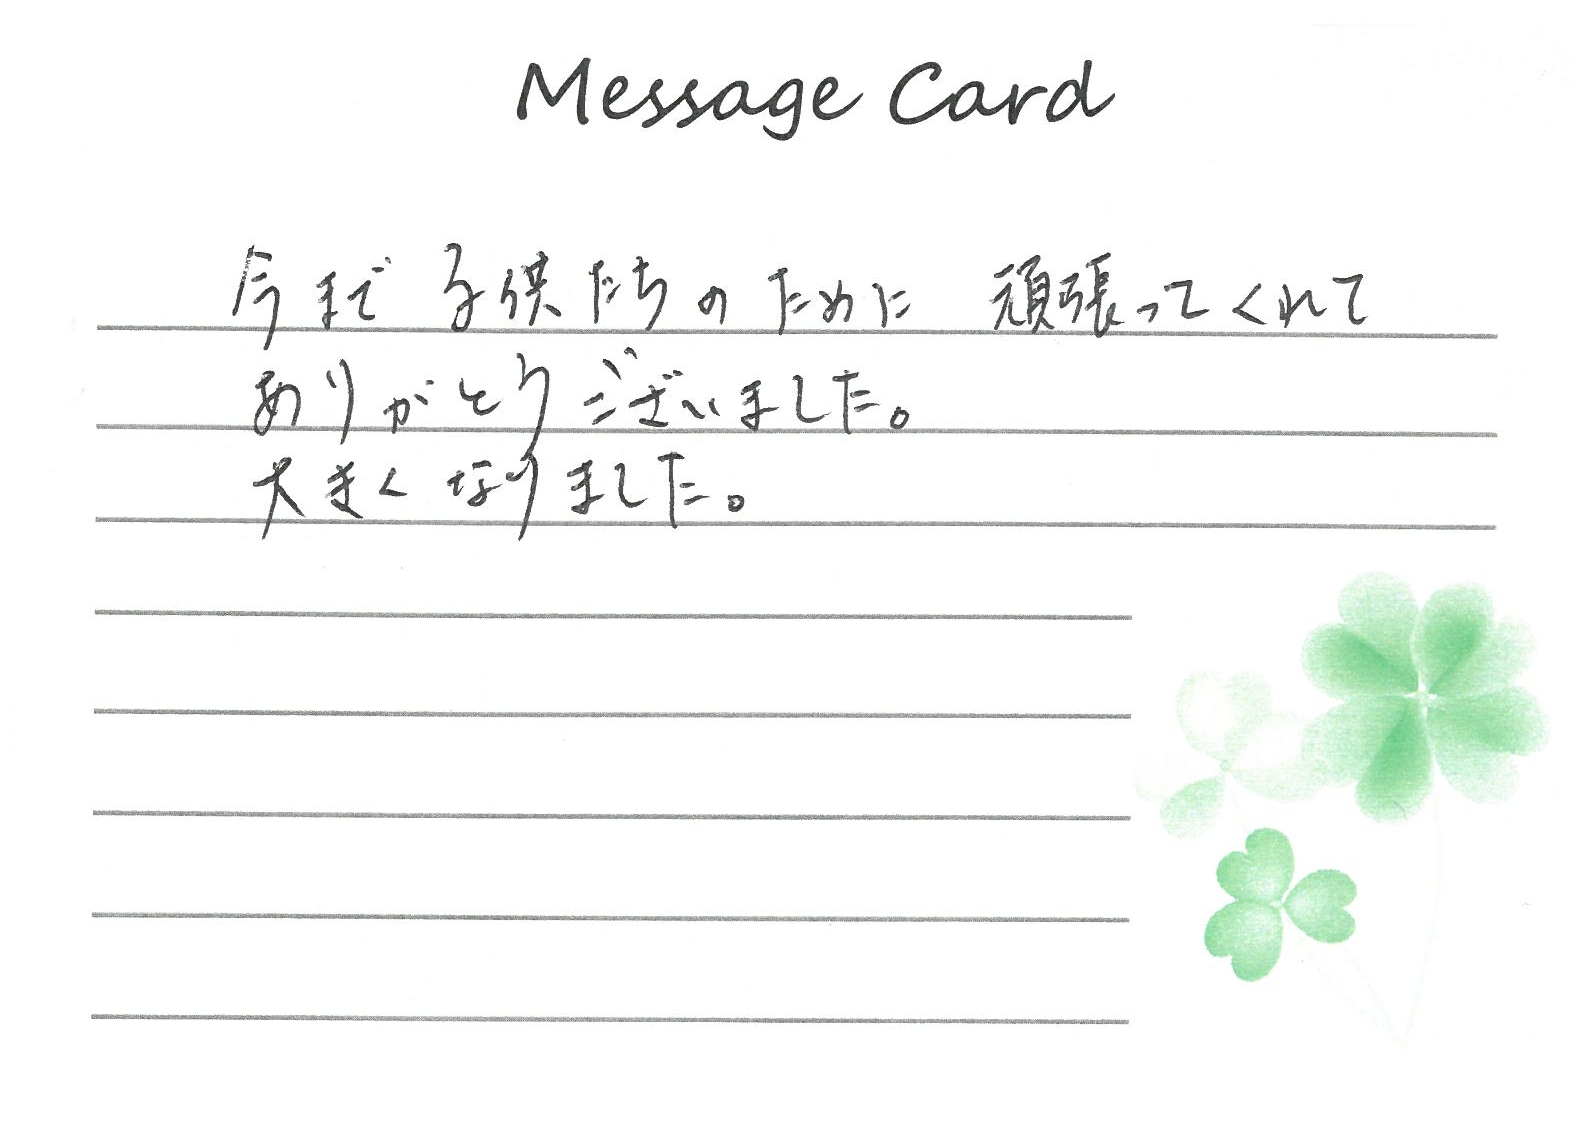 Message Card
今まで子供たちのために頑張ってくれて
ありがとうございました。
大きくなりました。